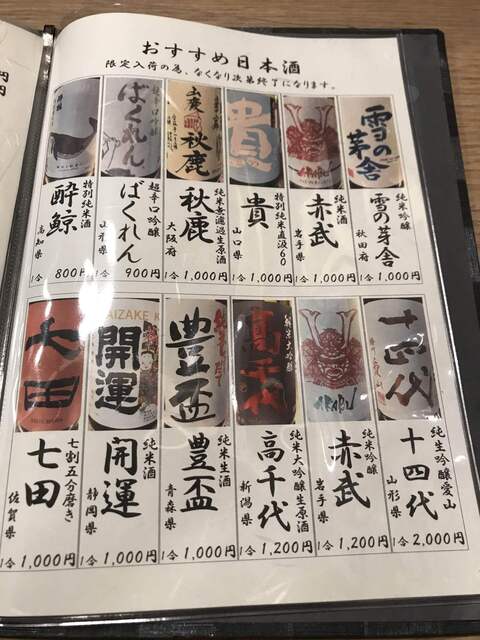 おすすめ日本酒
限定入荷の為、なくなり次第終了になります。
雪の茅舎
純米吟醸
雪の茅舎
秋田府
1合 1,000円
AKABU
純米酒
赤武
岩手県
1合 1,000円
貴
特別純米直汲60
貴
山口県
1合 1,000円
山廃
秋鹿
純米無濾過生原酒
秋鹿
大阪府
1合 1,000円
ばくれん
超辛口吟醸
ばくれん
山形県
1合 900円
特別純米酒
酔鯨
高知県
1合 800円
十四代
純生吟醸愛山
十四代
山形県
1合 2,000円
AKABU
純米吟醸
赤武
岩手県
1合 1,200円
高千代
純米大吟醸
純米大吟醸生原酒
高千代
新潟県
1合 1,200円
豊盃
純米生酒
豊盃
青森県
1合 1,000円
AIZAKE K
開運
純米酒
開運
静岡県
1合 1,000円
七田
七割五分磨き
七田
佐賀県
1合 1,000円
円
円